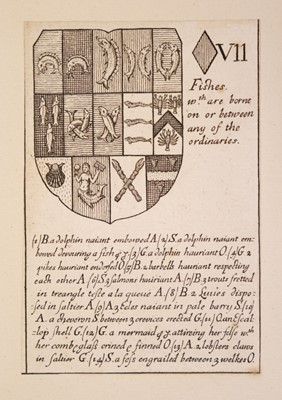 VII
Fishes.
wch. are borne
on or between
any of the
ordinaries.
(1) B. a dolphin naiant embowed A (2) S. a dolphin naiant em-
bowed devouring a fish (3) G a dolphin hauriant O. (4) G 2
pikes hauriant endorsed O (5) B. 2 barbells hauriant respecting
each other A (6) S. 3 salmons hauriant A. (7) B. 3 trouts fretted
in treangle teste a la queue A (8) B 2 Lucies dispo:
sed in saltier A (9) A 3 Eeles naiant in pale barry S (10)
A. a cheveron S between 3 crevices erected G. (11) O. an Escal:
lop shell G. (12) G a mermaid attiring her selfe wth
her combe glass crined & finned O. (13) A. 2 lobsters claws
in saltier G. (14) S. a fess engrailed between 3 welkes O.